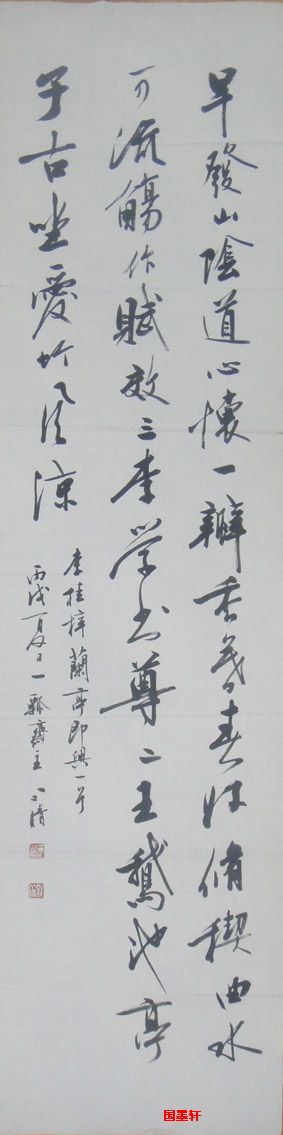 早發山陰道心懷一瓣香暮春好脩禊曲水
可流觴作賦效三李学书尊二王鵝池亭
子古坐愛竹風涼
李桂梓蘭亭即興一首
丙戌夏日一瓢齋主
国墨轩